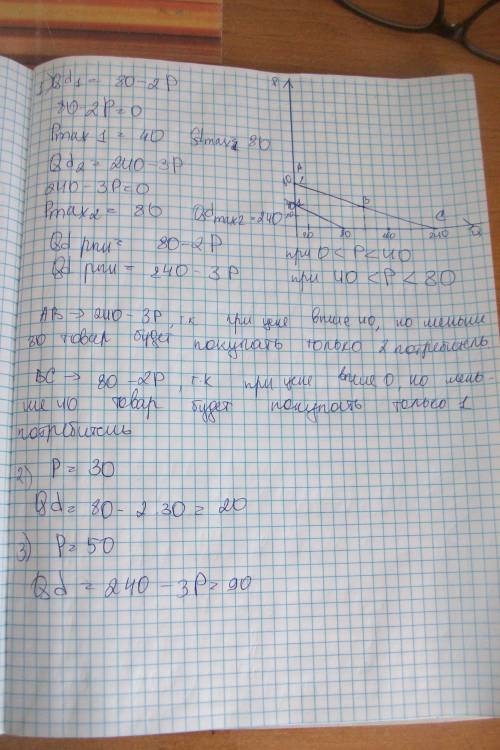 1) Qd1 = 80 - 2P
80 - 2P = 0
Pmax 1 = 40 Qdmax1 80
Qd2 = 240 - 3P
240 - 3P = 0
Pmax2 = 80 Qdmax2 = 240
Qd рпи = 80 - 2P при 0 < P < 40
Qd рпи = 240 - 3P при 40 < P < 80
P
A
B
C
240
Q
AB → 240 - 3P, т.к при цене выше 40, но меньше
80 товар будет покупать только 2 потребитель
BC → 80 - 2P, т.к при цене выше 0, но мень-
ше 40 товар будет покупать только 1
потребитель
2) P = 30
Qd = 80 - 2 · 30 = 20
3) P = 50
Qd = 240 - 3P = 90